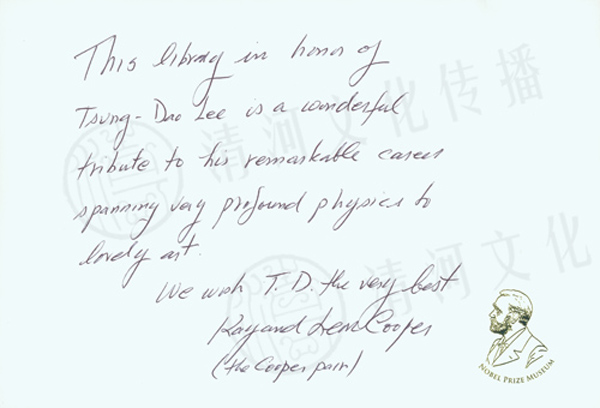 This library in honor of
Tsung-Dao Lee is a wonderful
tribute to his remarkable career
spanning very profound physics to
lovely art.
We wish T. D. the very best
Kay and Leon Cooper
(the Cooper pair)
NOBEL PRIZE MUSEUM
清河文化传播
清河文化